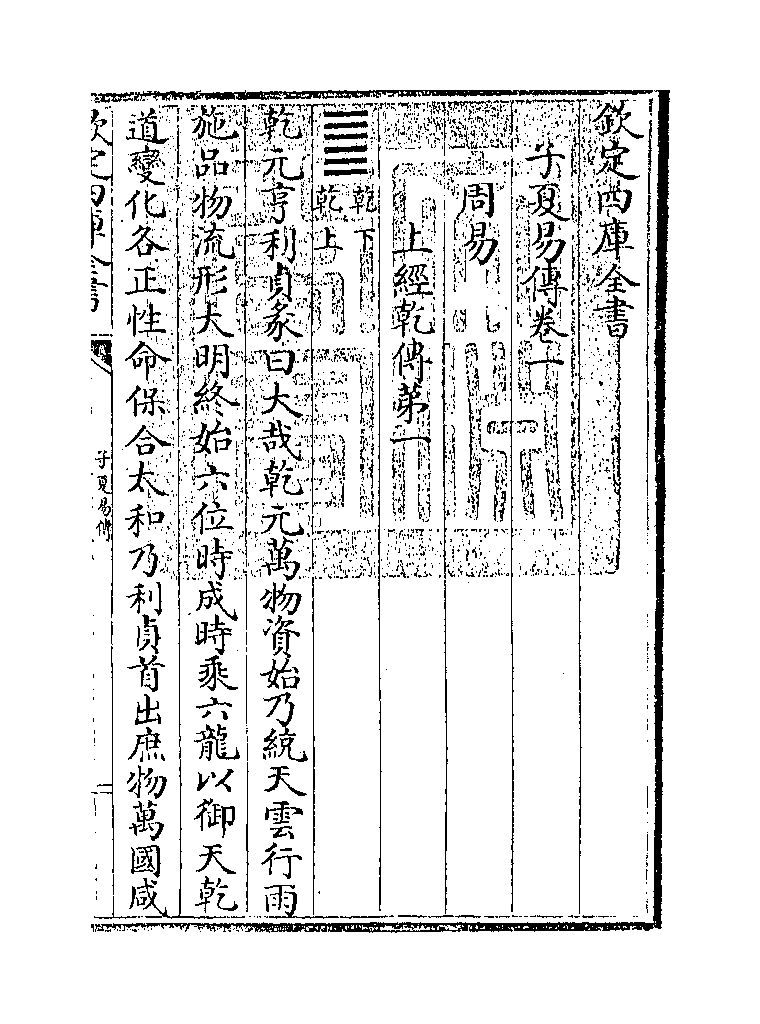 欽定四庫全書
子夏易傳卷一
周易
上經乾傳第一
䷀
乾下
乾上
乾元亨利貞彖曰大哉乾元萬物資始乃統天雲行雨
施品物流形大明終始六位時成時乘六龍以御天乾
道變化各正性命保合太和乃利貞首出庶物萬國咸
欽定四庫全書
子夏易傳